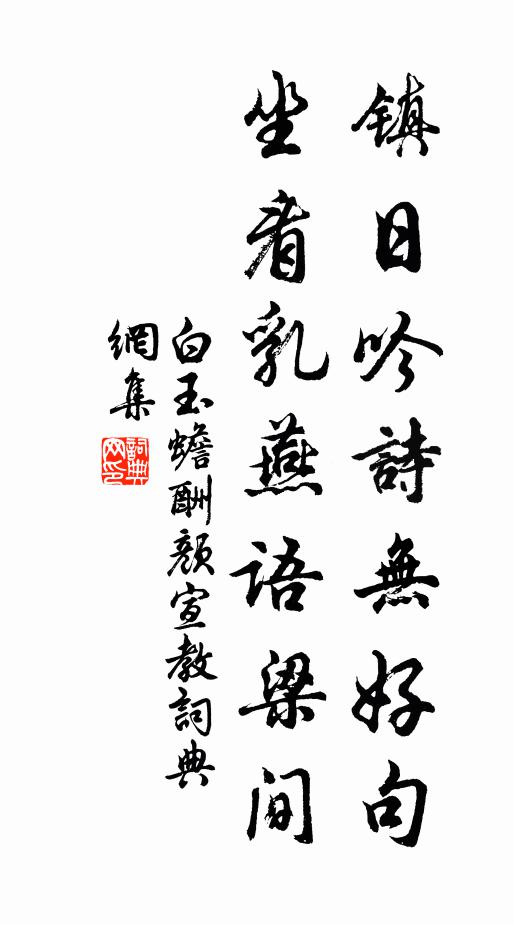 镇日吟詩無好句
坐看乳燕语梁间
白玉蟾酬顔宣教詞典
網集
詞典网印